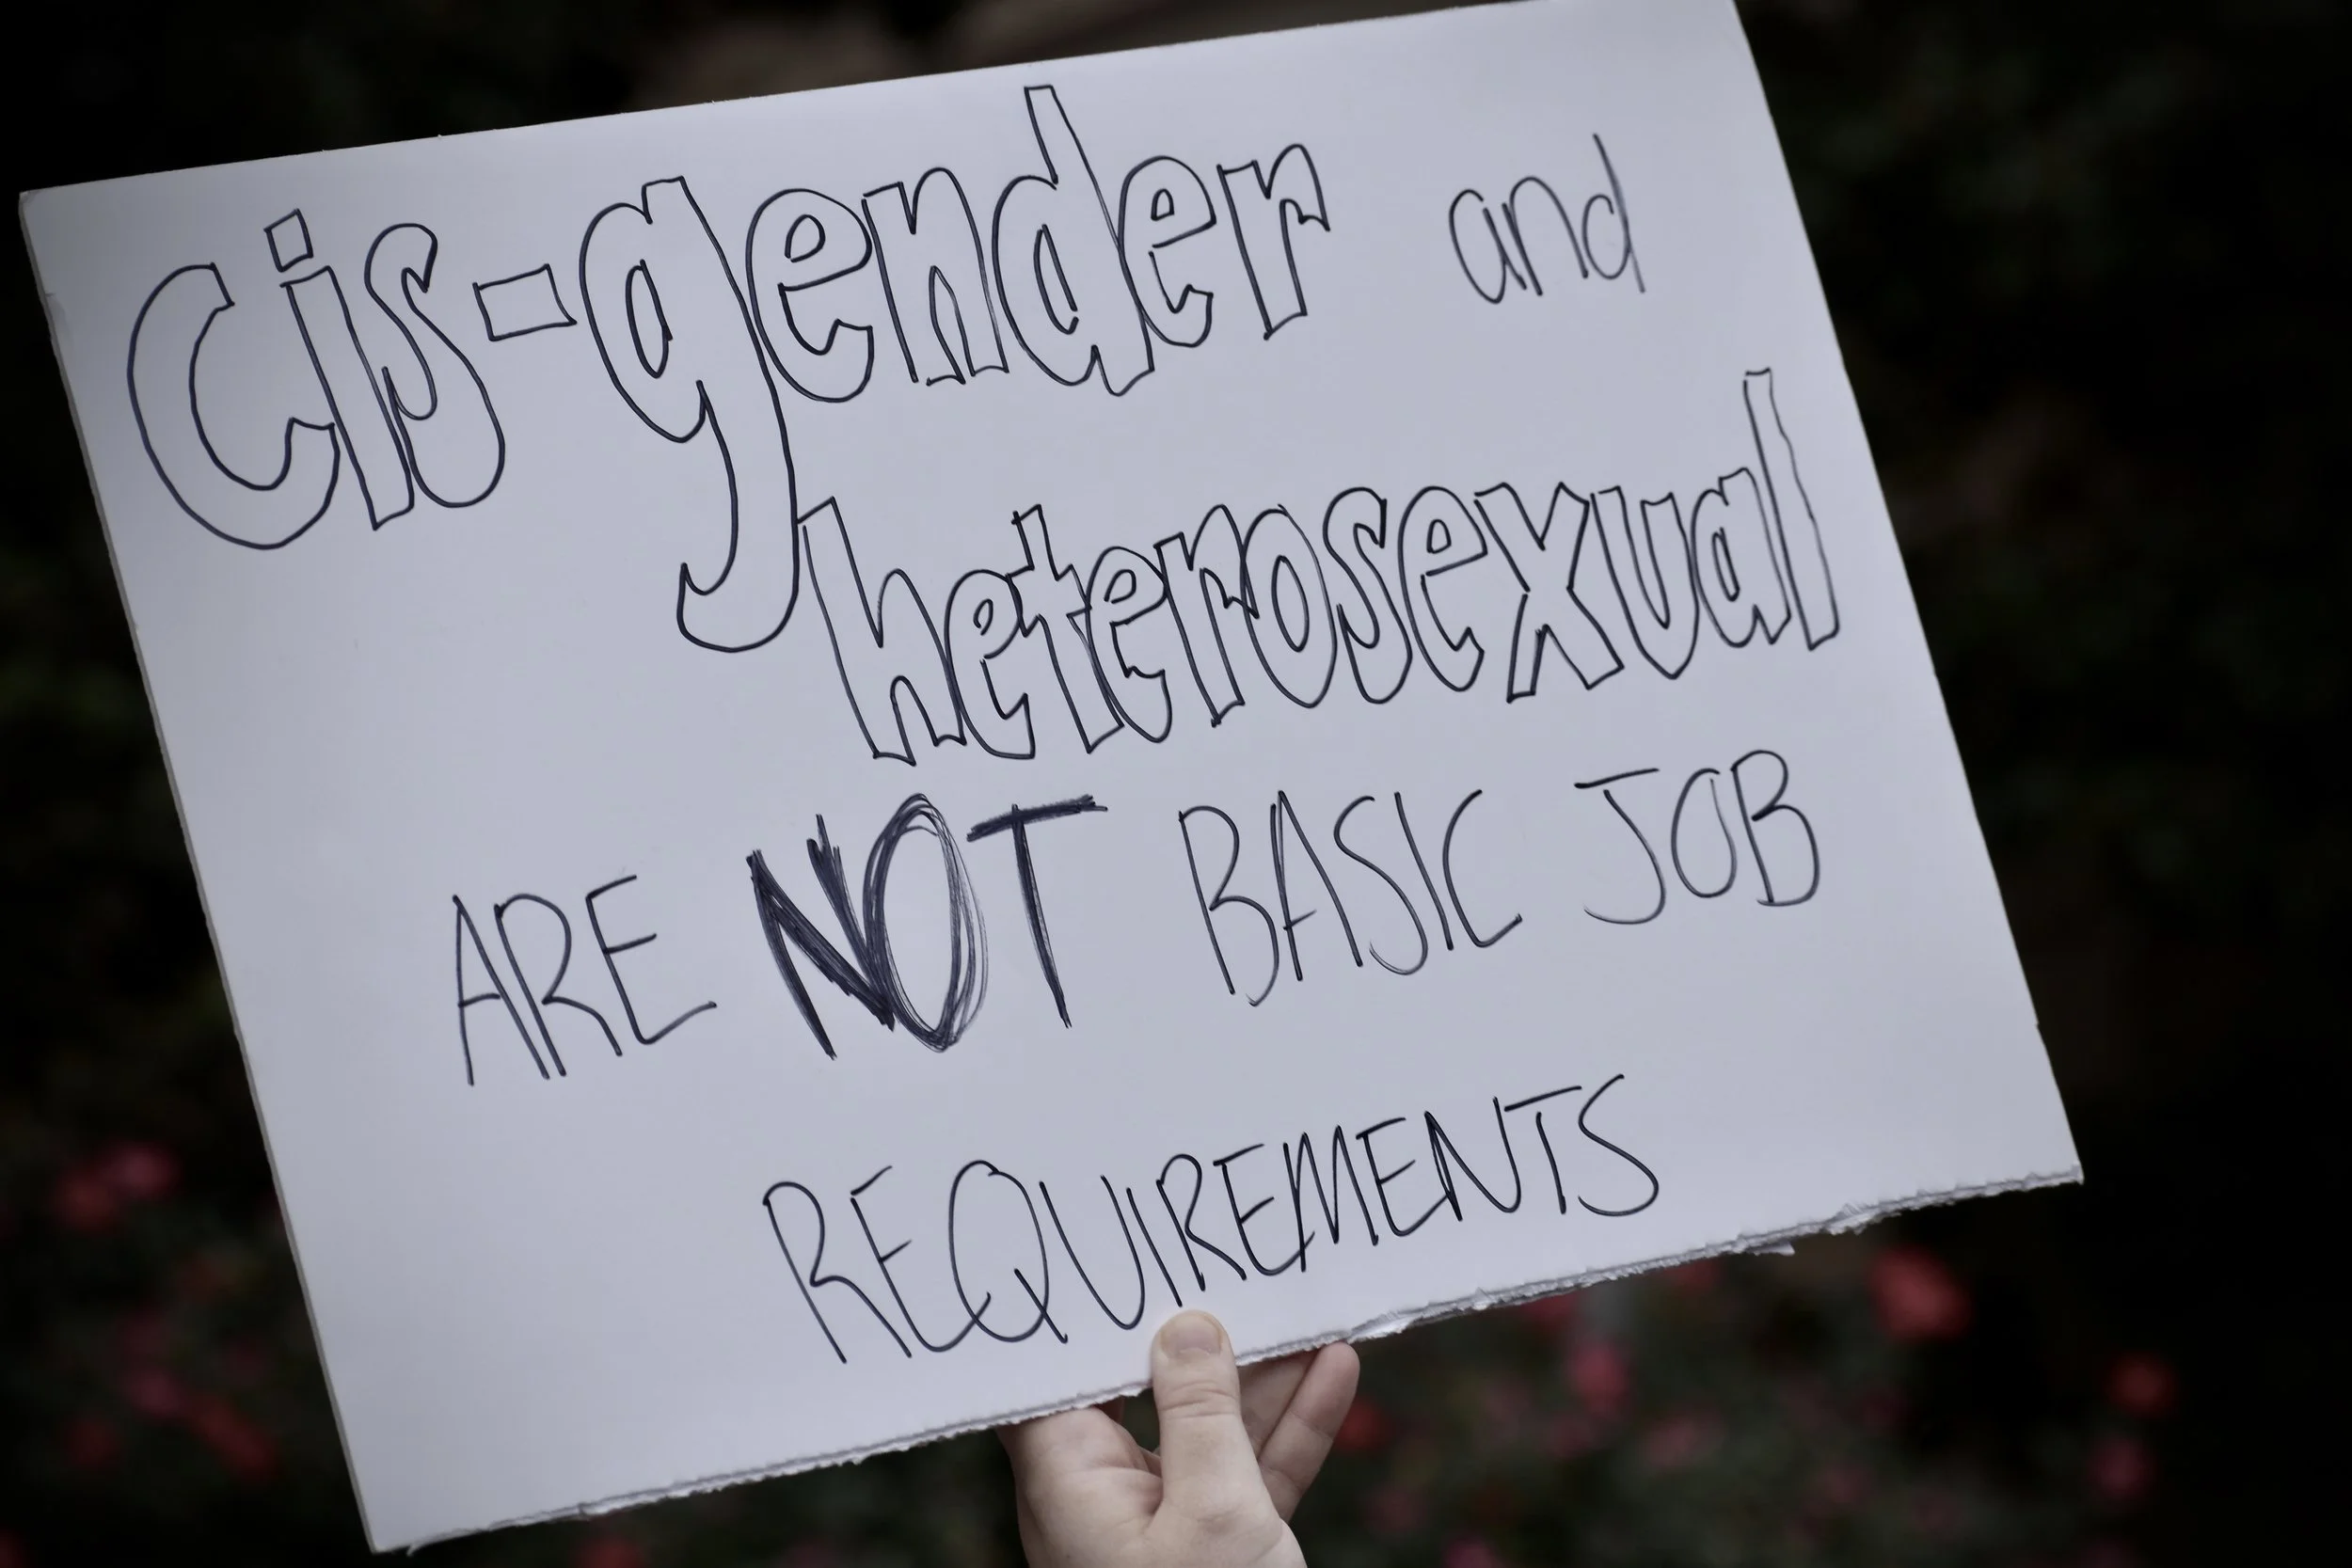 cis-gender and
heterosexual
ARE NOT BASIC JOB
REQUIREMENTS